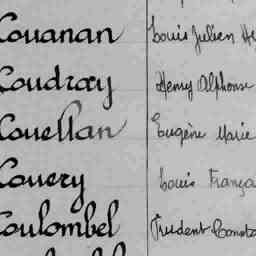 Couanan Louis Julien He
Coudray Henry Alphonse
Couellan Eugène Marie
Couery Louis França
Coulombel Prudent Consta